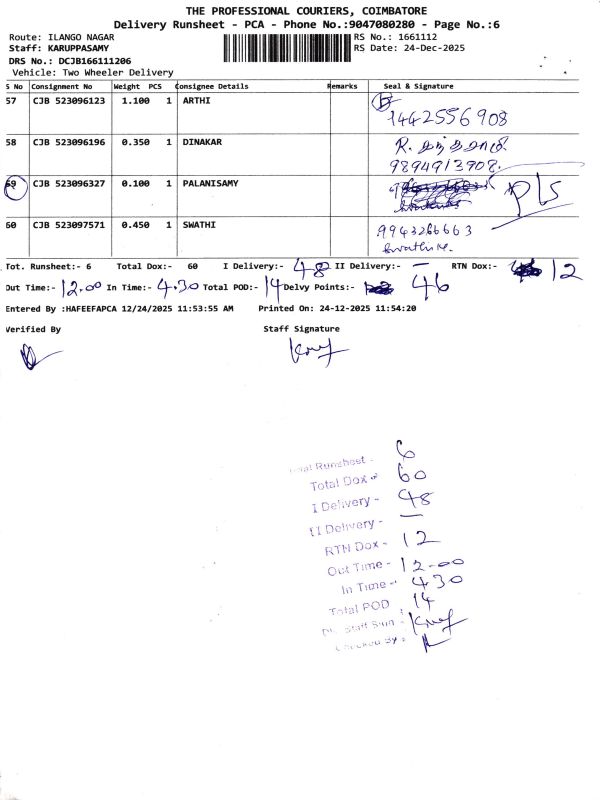 THE PROFESSIONAL COURIERS, COIMBATORE
Delivery Runsheet - PCA - Phone No.:9047080280 - Page No.:6
Route: ILANGO NAGAR
RS No.: 1661112
Staff: KARUPPASAMY
RS Date: 24-Dec-2025
DRS No.: DCJB166111206
Vehicle: Two Wheeler Delivery
S No Consignment No Weight PCS Consignee Details Remarks Seal & Signature
57 CJB 523096123 1.100 1 ARTHI
9442556908
58 CJB 523096196 0.350 1 DINAKAR
9894913908.
59 CJB 523096327 0.100 1 PALANISAMY
60 CJB 523097571 0.450 1 SWATHI 9943266663
Swathi.
Tot. Runsheet:- 6 Total Dox:- 60 I Delivery:- 48 II Delivery:- — RTN Dox:- 12
Out Time:- 12.00 In Time:- 4.30 Total POD:- 14 Delvy Points:- 46
Entered By :HAFEEFAPCA 12/24/2025 11:53:55 AM Printed On: 24-12-2025 11:54:20
Verified By Staff Signature
Total Runsheet - 6
Total Dox - 60
I Delivery - 48
II Delivery - —
RTN Dox - 12
Out Time - 12-00
In Time - 430
Total POD : 14
Checked By :